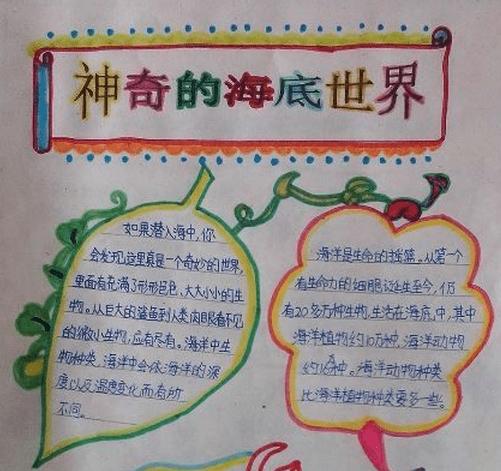 神奇的海底世界
如果潜入海中,你
会发现这里真是一个奇妙的世界,
里面有充满了形形色色、大大小小的生
物。从巨大的鲨鱼到人类肉眼看不见
的微小生物,应有尽有。海洋中生
物种类,海洋中会依海洋的深
度以及温度变化而有所
不同。
海洋是生命的摇篮。从第一个
有生命力的细胞诞生至今,仍
有20多万种生物生活在海底中,其中
海洋植物约10万种,海洋动物
约16万种。海洋动物种类
比海洋植物种类要多一些。